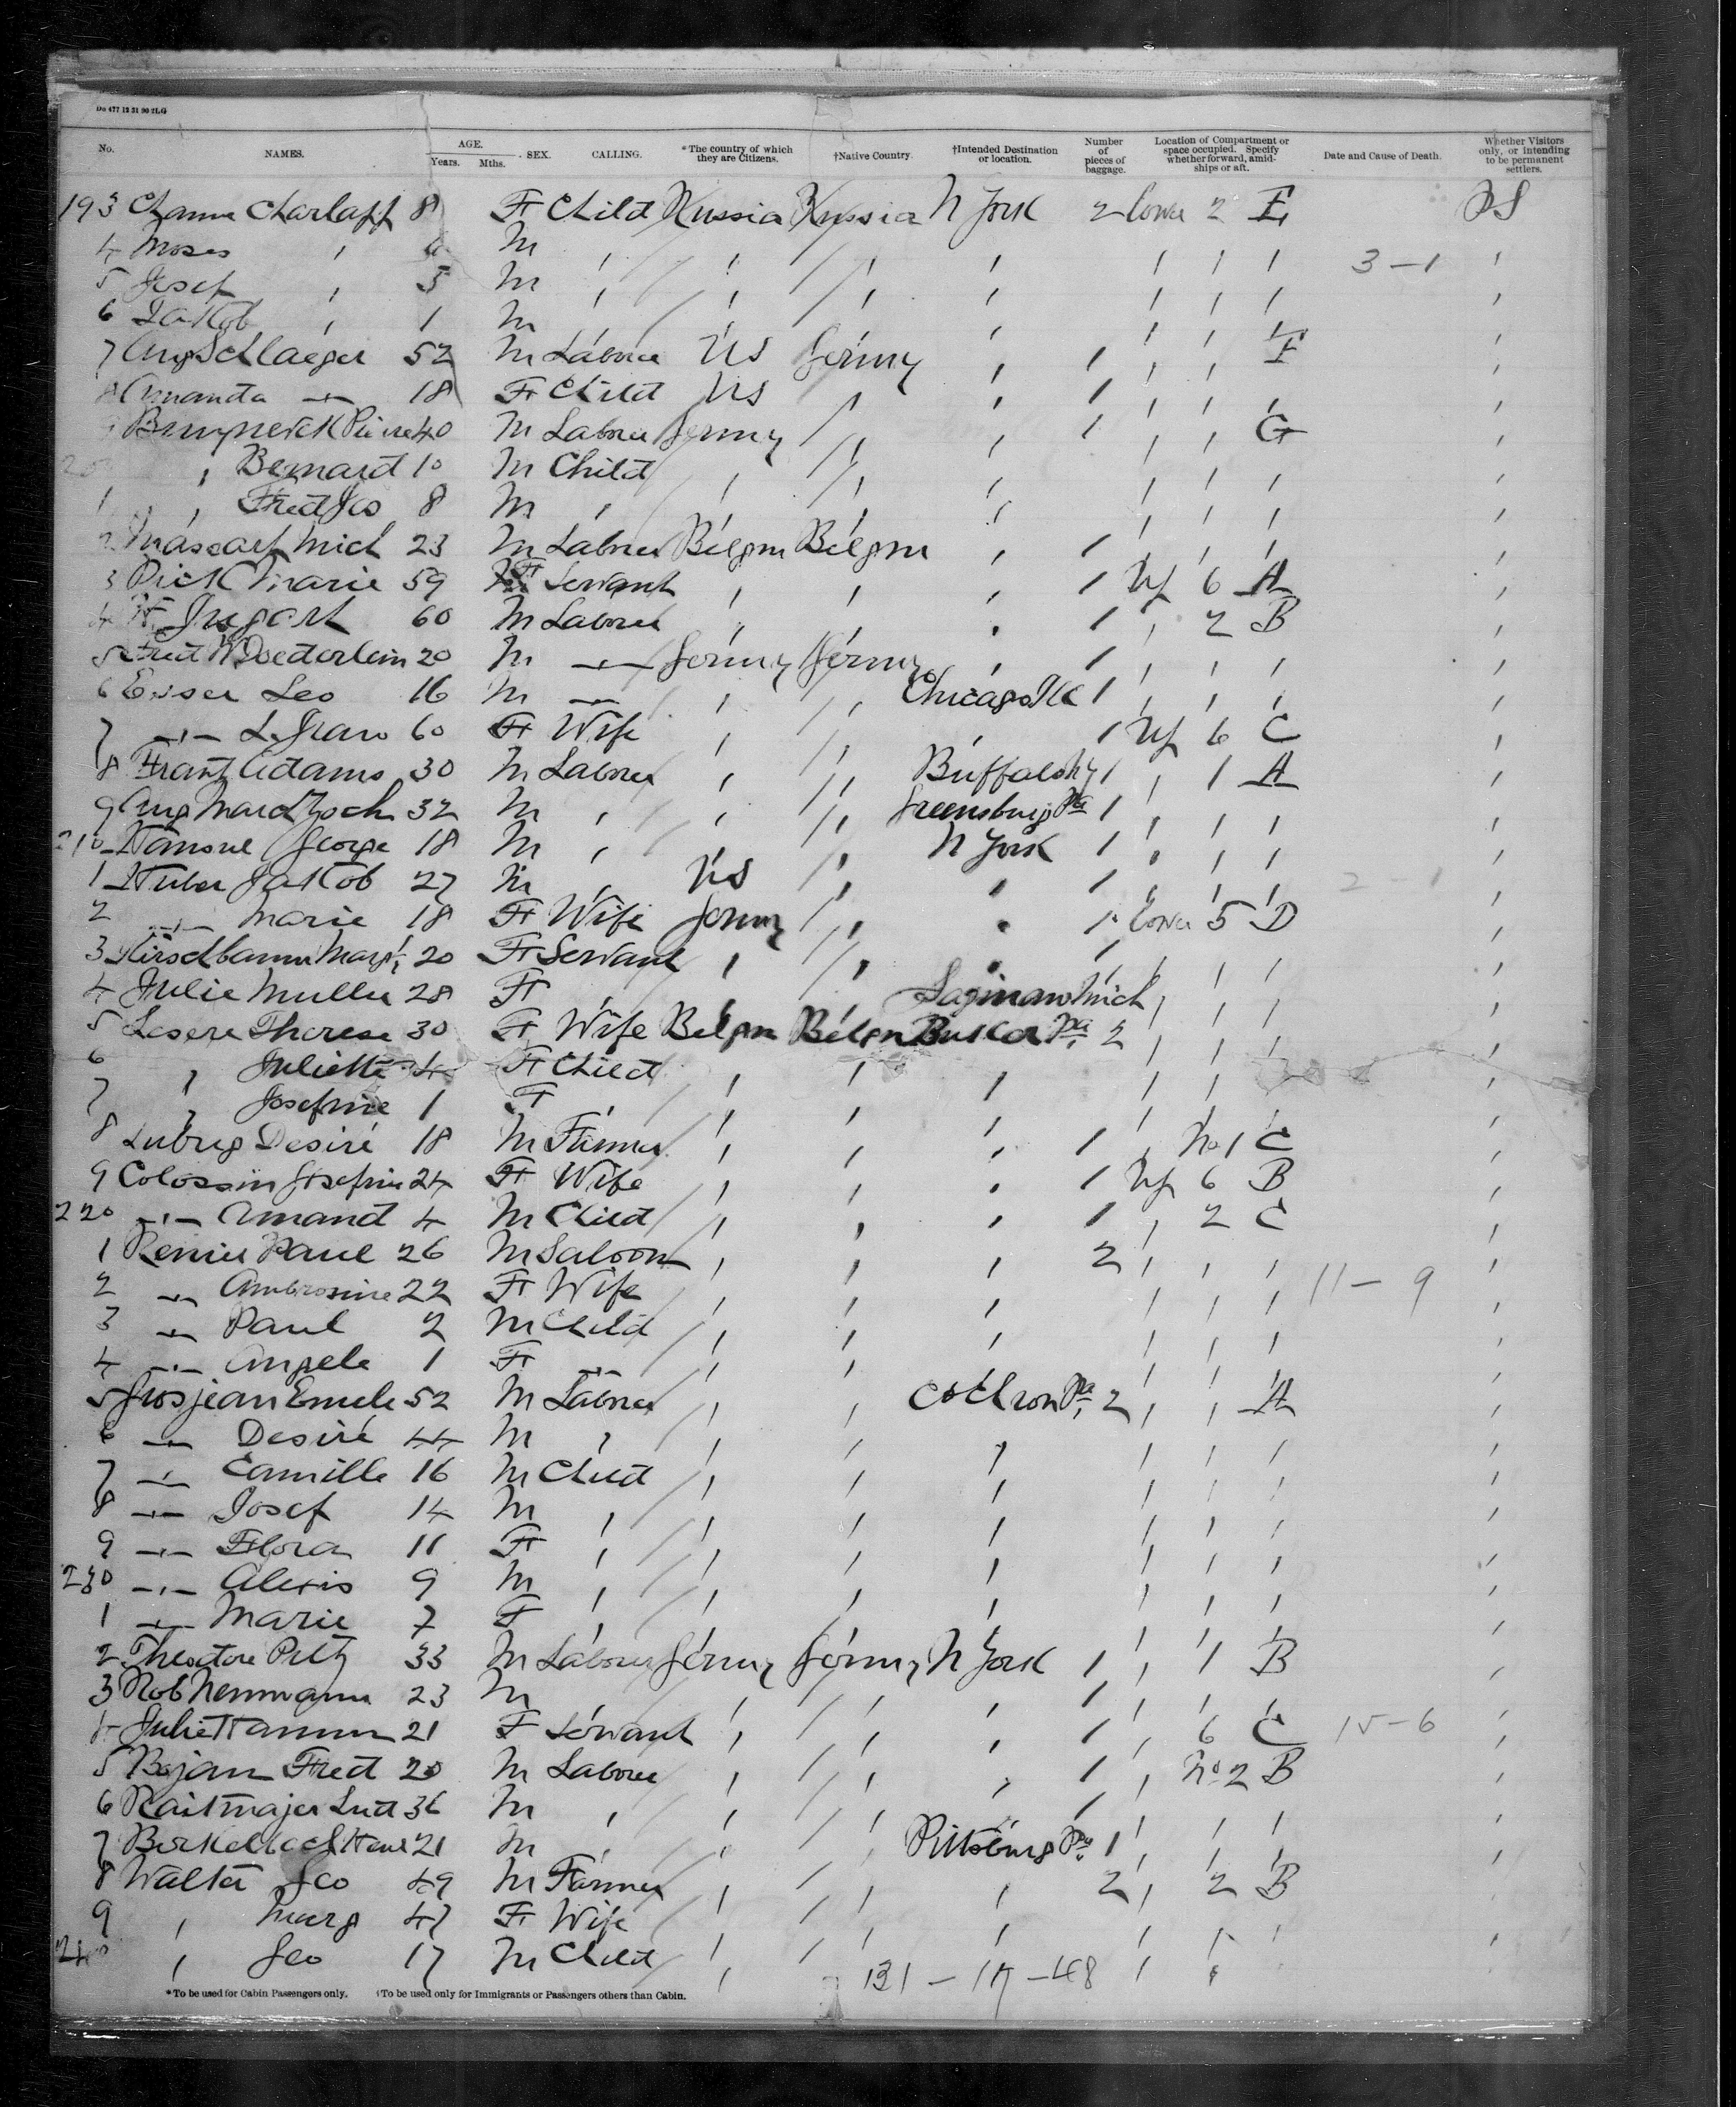 Do 477 12 31 90 2LG
No. NAMES. AGE. Years. Mths. SEX. CALLING. *The country of which they are Citizens. †Native Country. †Intended Destination or location. Number of pieces of baggage. Location of Compartment or space occupied. Specify whether forward, amidships or aft. Date and Cause of Death. Whether Visitors only, or intending to be permanent settlers.
193 Channe Charlaff 8 F Child Russia Russia N York 2 Lower 2 E
4 Moses , 6 M , , , , , , , 3-1 ,
5 Josef , 3 M , , , , , , , ,
6 Jakob , 1 M , , , , , , ,
7 Aug Schlaeger 52 M Laborer US Germy , 1 , , F ,
8 Amanda -"- 18 F Child US , , 1 , , , ,
Pierre 40 M Laborer Germy , , 1 , , G ,
, Bernard 10 M Child , , , , , , ,
1 , Fred Jco 8 M , , , , , , , ,
2 Massart Mich 23 M Laborer Belgm Belgm , 1 , , , ,
3 Dick Marie 59 F Servant , , , 1 Up 6 A ,
4 60 M Laborer , , , 1 , 2 B ,
5 Fred W Doederlein 20 M -"- Germy Germy , 1 , , , ,
6 Esser Leo 16 M -"- , , Chicago Ill 1 , , , ,
7 -"- 60 F Wife , , , 1 Up 6 C ,
8 Frantz Adams 30 M Laborer , , Buffalo NY 1 , 1 A ,
9 Aug 32 M , , , Greensburg Pa 1 , , , ,
210 George 18 M , , , N York 1 , , , ,
1 Huber Jakob 27 M , US , , 1 , , , 2-1 ,
2 -"- Marie 18 F Wife Germy , , 1 Lower 5 D ,
3 Hirschbaum Margt 20 F Servant , , , 1 , , , ,
4 Julie Muller 28 F , , , Saginaw Mich , , , ,
5 Lesere Therese 30 F Wife Belgm Belgm Butler Pa 2 , , , ,
6 , Juliette 4 F Child , , , , , , ,
7 , Josefine 1 F , , , , , , , ,
8 Desiré 18 M Farmer , , , 1 , No 1 C ,
9 Colossin Josefine 24 F Wife , , , 1 Up 6 B ,
220 -"- Amand 4 M Child , , , 1 , 2 C ,
1 Renier Paul 26 M Saloon , , , 2 , , , ,
2 -"- Ambrosine 22 F Wife , , , , , , 11-9 ,
3 -"- Paul 2 M Child , , , , , , ,
4 -"- Angele 1 F -"- , , , , , , ,
5 Grosjean Emele 52 M Laborer , , Cochron Pa 2 , , A ,
6 -"- Desiré 44 M , , , , , , , ,
7 -"- Camille 16 M Child , , , , , , ,
8 -"- Josef 14 M , , , , , , , ,
9 -"- Flora 11 F , , , , , , , ,
230 -"- Alexis 9 M , , , , , , , ,
1 -"- Marie 7 F , , , , , , , ,
2 Theodore Piltz 33 M Laborer Germy Germy N York 1 , 1 B ,
3 Rob Nenmann 23 M , , , , 1 , , , ,
4 Julie Hamm 21 F Servant , , , 1 , 6 C 15-6 ,
5 Bojan Fred 20 M Laborer , , , 1 , No 2 B ,
6 Raitmajer Lud 36 M , , , , 1 , , , ,
7 21 M , , , Pittsburg Pa 1 , , , ,
8 Walter Geo 49 M Farmer , , , 2 , 2 B ,
9 , Marg 47 F Wife , , , , , , ,
240 , Geo 17 M Child , , ,
131-17-48
*To be used for Cabin Passengers only. †To be used only for Immigrants or Passengers others than Cabin.